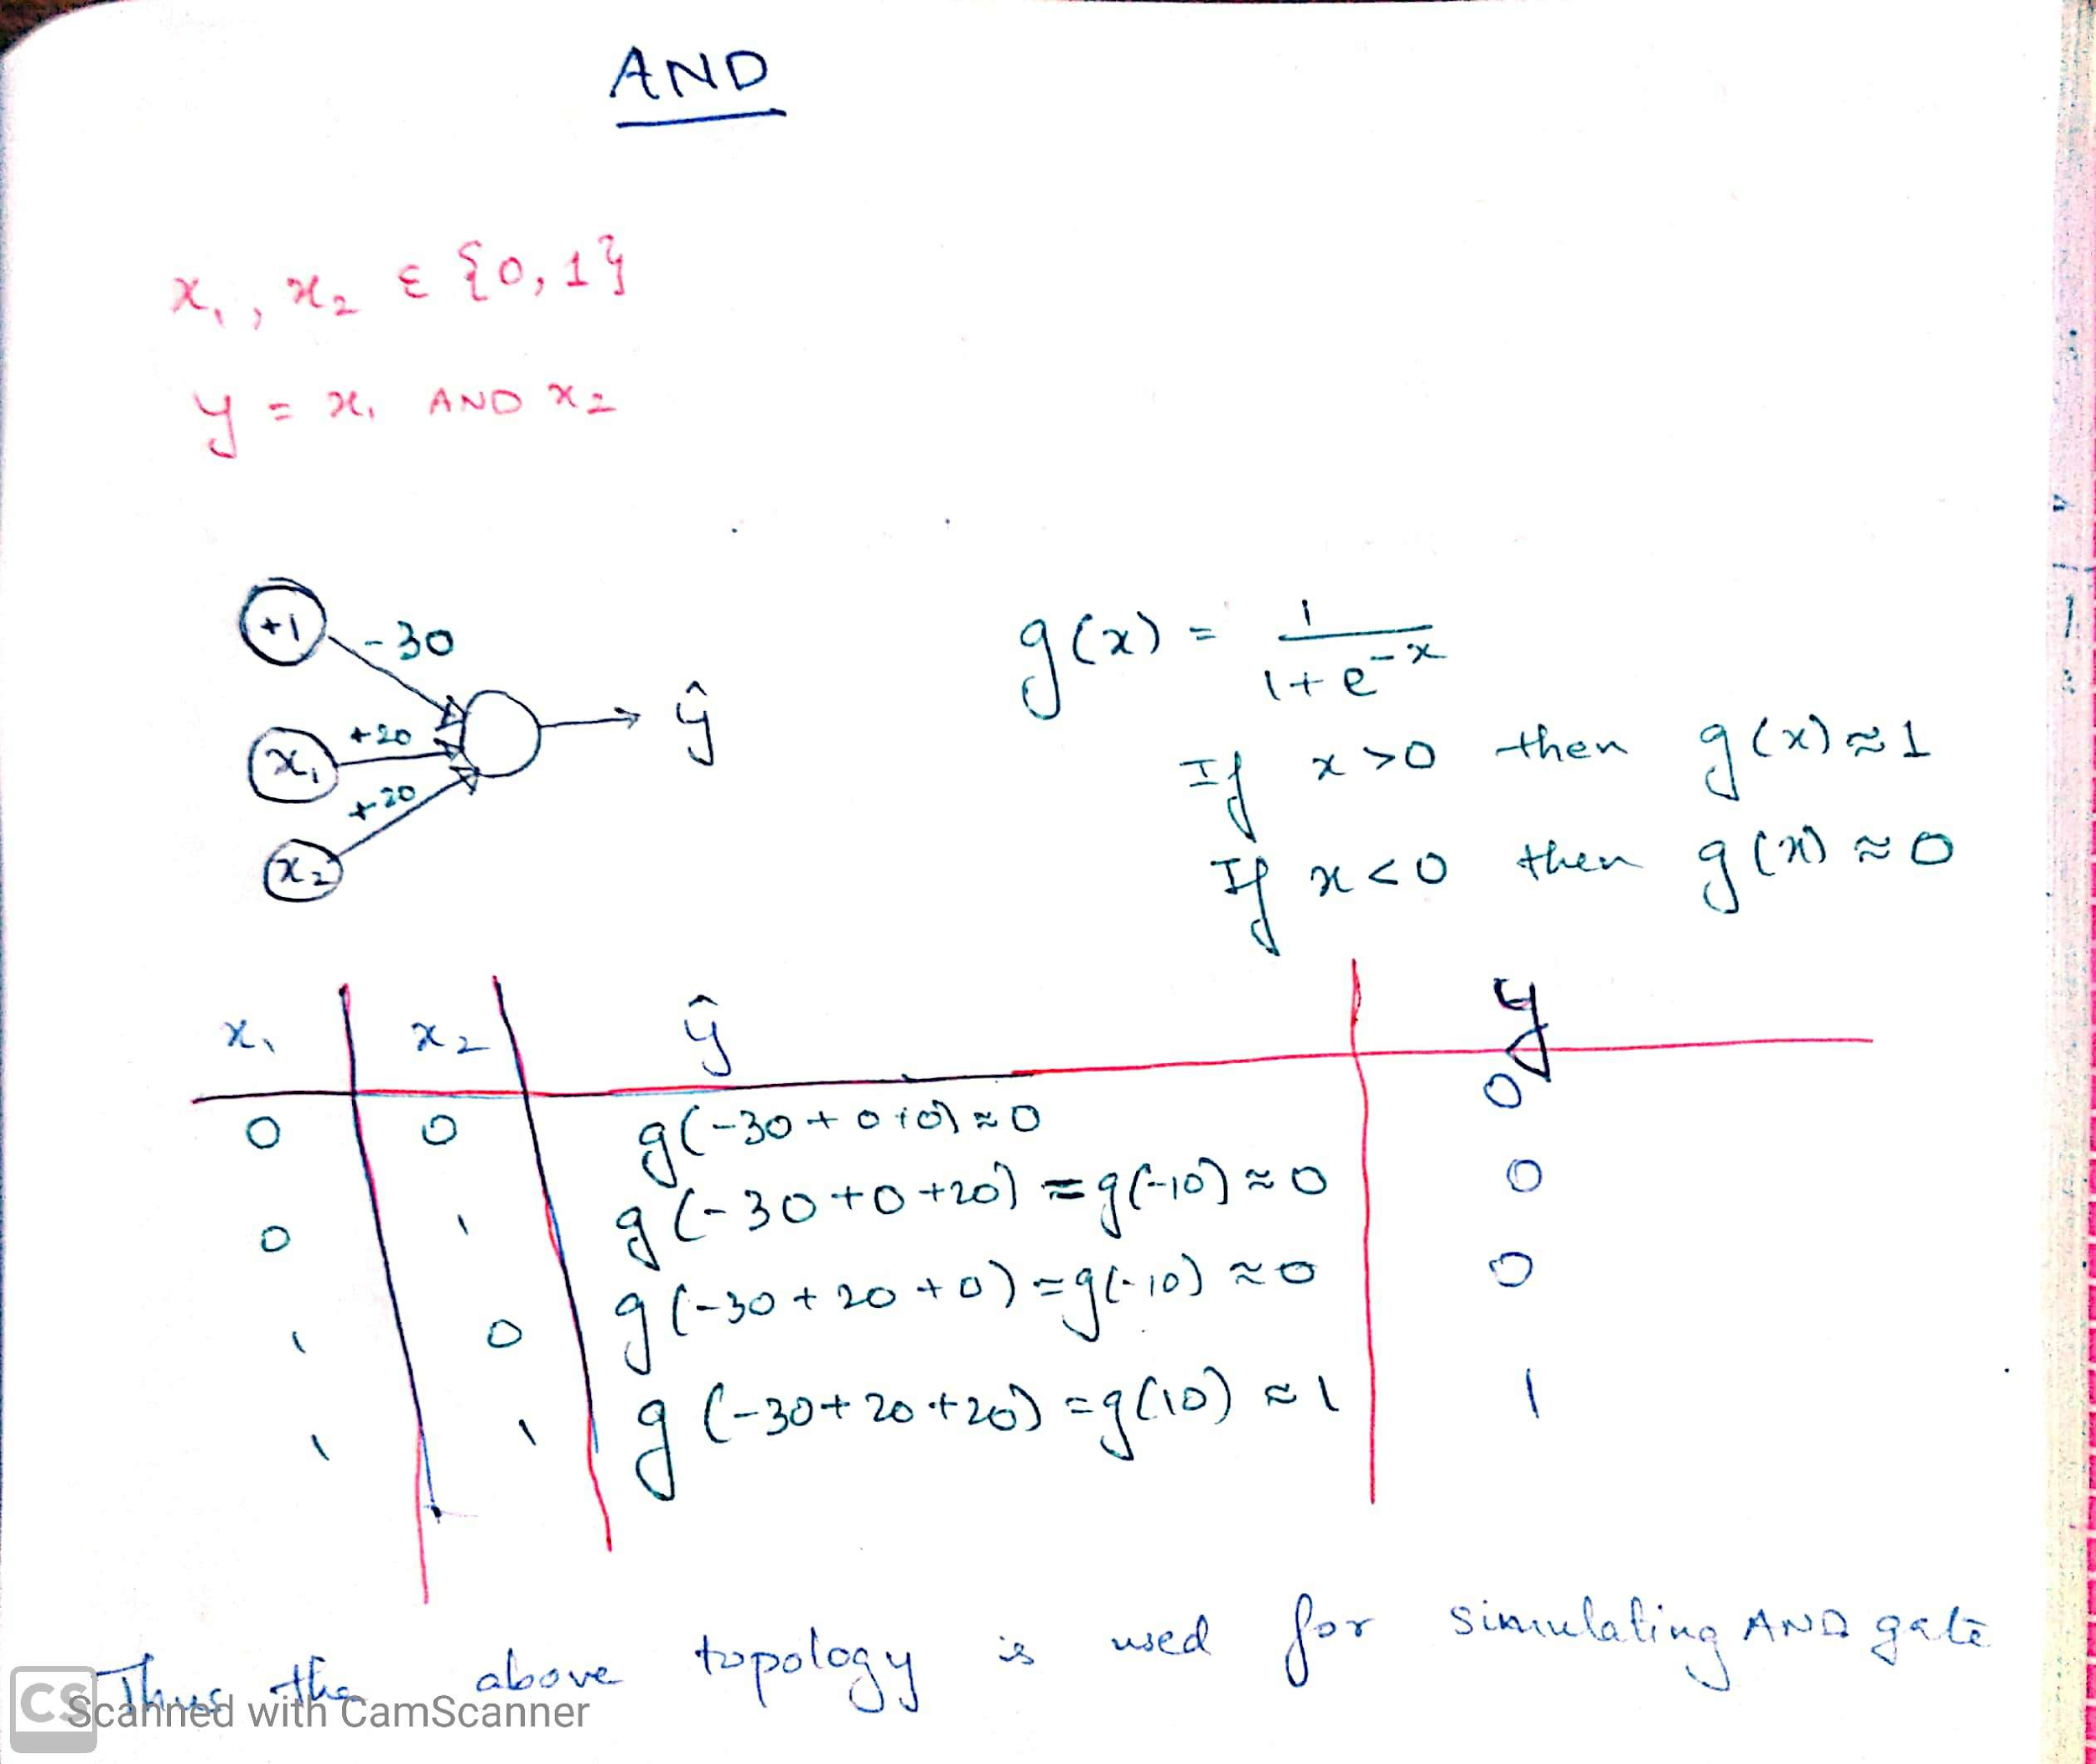 AND
x₁, x₂ ε {0, 1}
y = x₁ AND x₂
+1 -30
x₁ +20 ŷ
x₂ +20
g(x) = 1/(1+e⁻ˣ)
If x>0 then g(x)≈1
If x<0 then g(x)≈0
x₁ x₂ ŷ y
0 0 g(-30+0+0)≈0 0
0 1 g(-30+0+20)=g(-10)≈0 0
1 0 g(-30+20+0)=g(-10)≈0 0
1 1 g(-30+20+20)=g(10)≈1 1
Thus the above topology is used for simulating AND gate
CS Scanned with CamScanner